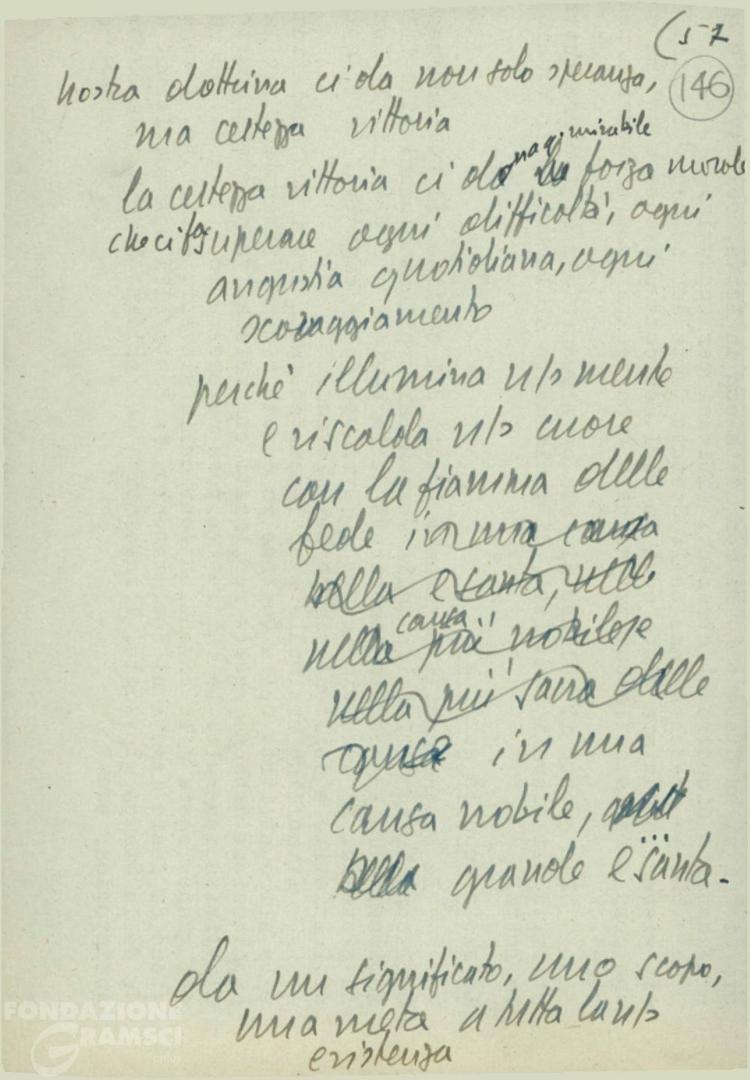 (57
146
nostra dottrina ci da non solo speranza,
ma certezza vittoria
mirabile
la certezza vittoria ci da forza morale
che ci fa superare ogni difficoltà, ogni
angustia quotidiana, ogni
scoraggiamento
perchè illumina n/s mente
e riscalda n/s cuore
con la fiamma della
fede in una causa
bella e santa, nella
causa
nella più nobile e
nella più sacra delle
cause in una
causa nobile,
bella grande e santa.
da un significato, uno scopo,
una meta a tutta la n/s
esistenza
FONDAZIONE
GRAMSCI